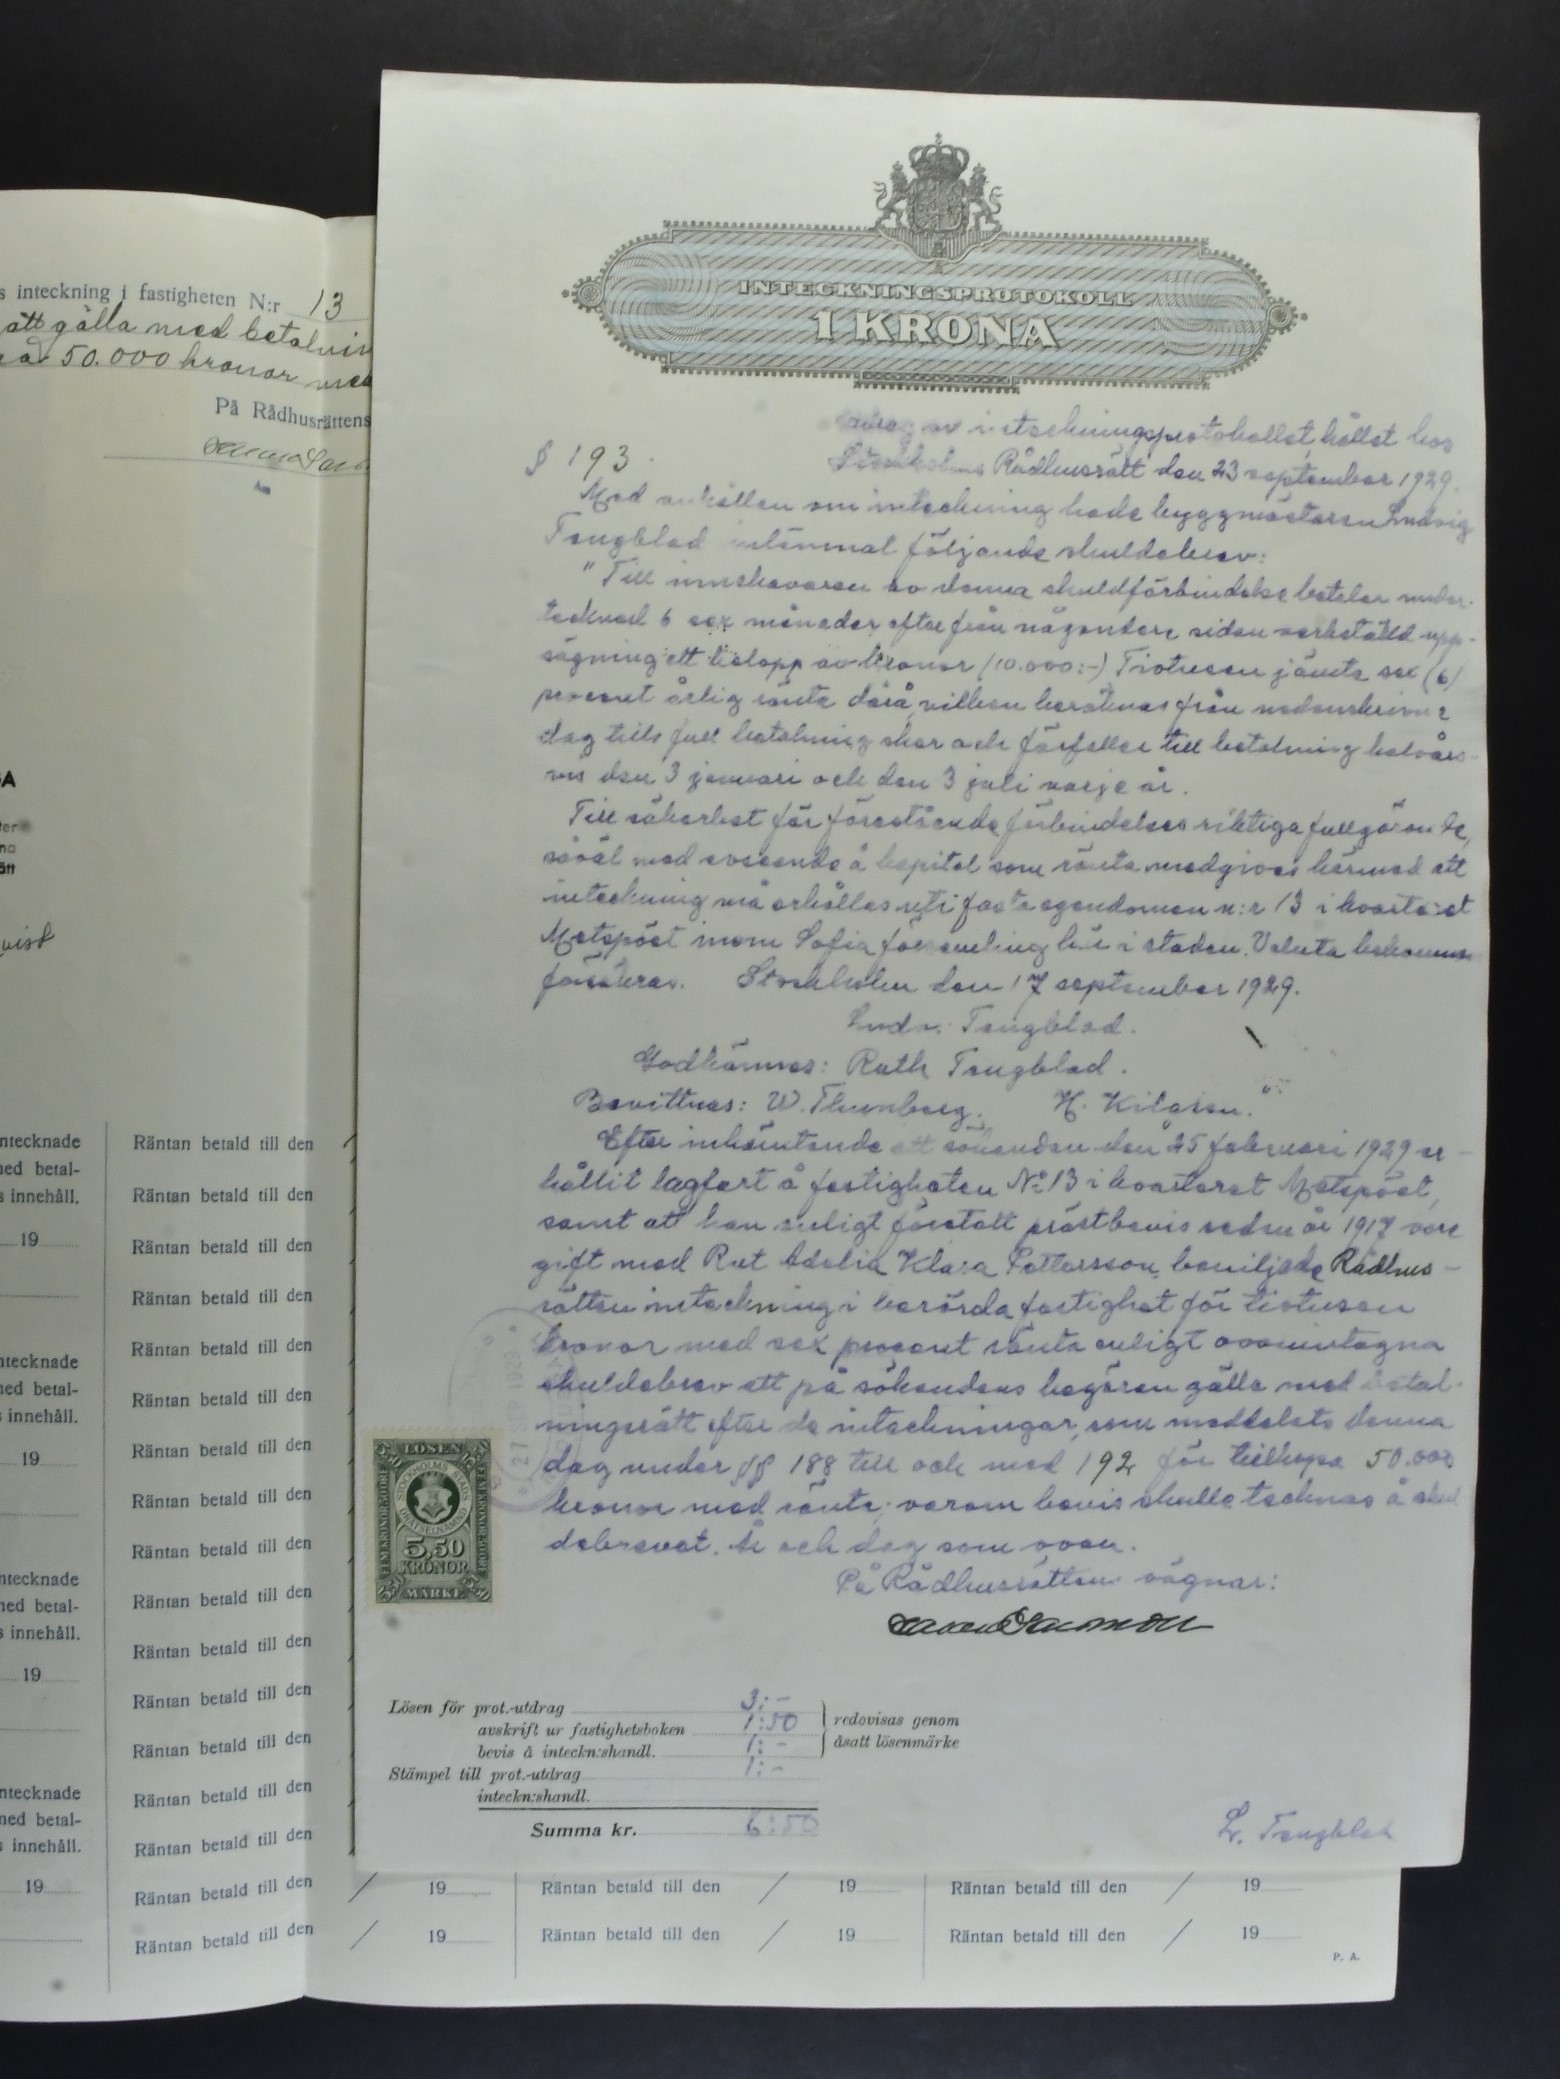 s inteckning i fastigheten N:r 13
att gälla med betalnin
50.000 kronor med
På Rådhusrättens
INTECKNINGSPROTOKOLL
1 KRONA
av inteckningsprotokollet, hållet hos
§ 193. Stockholms Rådhusrätt den 23 september 1929.
Med anhållan om inteckning hade byggmästaren Ludvig
Tengblad inlämnat följande skuldebrev:
"Till innehavaren av denna skuldförbindelse betalar under-
tecknad 6 sex månader efter från någondera sidan verkställd upp-
sägning ett belopp av kronor (10.000:-) Tiotusen jämte sex (6)
procent årlig ränta därå, vilken beräknas från nedanskrivna
dag tills full betalning sker och förfaller till betalning halvårs-
vis den 3 januari och den 3 juli varje år.
Till säkerhet för förestående förbindelses riktiga fullgörande,
såväl med avseende å kapital som ränta medgives härmed att
inteckning må erhållas uti fasta egendomen n:r 13 i kvarteret
Metspöet inom Sofia församling här i staden. Valuta bekommen
försäkras. Stockholm den 17 september 1929.
Ludv. Tengblad.
Godkännes: Ruth Tengblad.
Bevittnas: W. Thunberg. H.
Efter inhämtande att sökanden den 25 februari 1929 er-
hållit lagfart å fastigheten No 13 i kvarteret Metspöet,
samt att han enligt företett prästbevis sedan år 1917 vore
gift med Rut Adelia Klara Pettersson, beviljade Rådhus-
rätten inteckning i berörda fastighet för tiotusen
kronor med sex procent ränta enligt ovanintagna
skuldebrev att på sökandens begäran gälla med betal-
ningsrätt efter de inteckningar, som meddelats denna
dag under §§ 188 till och med 192 för tillhopa 50.000
kronor med ränta; varom bevis skulle tecknas å skul
debrevet. År och dag som ovan.
På Rådhusrättens vägnar:
LÖSEN
STOCKHOLMS STADS
DRÄTSELNÄMND
FEM KRONOR 50 ÖRE
5,50
KRONOR
MÄRKE
Lösen för prot.-utdrag 3:-
avskrift ur fastighetsboken 1:50 redovisas genom
bevis å inteckn:shandl. 1:- åsatt lösenmärke
Stämpel till prot.-utdrag 1:-
inteckn:shandl.
Summa kr. 6:50
L. Tengblad
GA
ter
na
ätt
vist
ntecknade
ned betal-
s innehåll.
19
ntecknade
ned betal-
s innehåll.
19
ntecknade
ned betal-
s innehåll.
19
ntecknade
ned betal-
s innehåll.
19
Räntan betald till den
Räntan betald till den
Räntan betald till den
Räntan betald till den
Räntan betald till den
Räntan betald till den
Räntan betald till den
Räntan betald till den
Räntan betald till den
Räntan betald till den
Räntan betald till den
Räntan betald till den
Räntan betald till den
Räntan betald till den
Räntan betald till den
Räntan betald till den / 19 Räntan betald till den / 19 Räntan betald till den / 19
Räntan betald till den / 19 Räntan betald till den / 19 Räntan betald till den / 19
P. A.